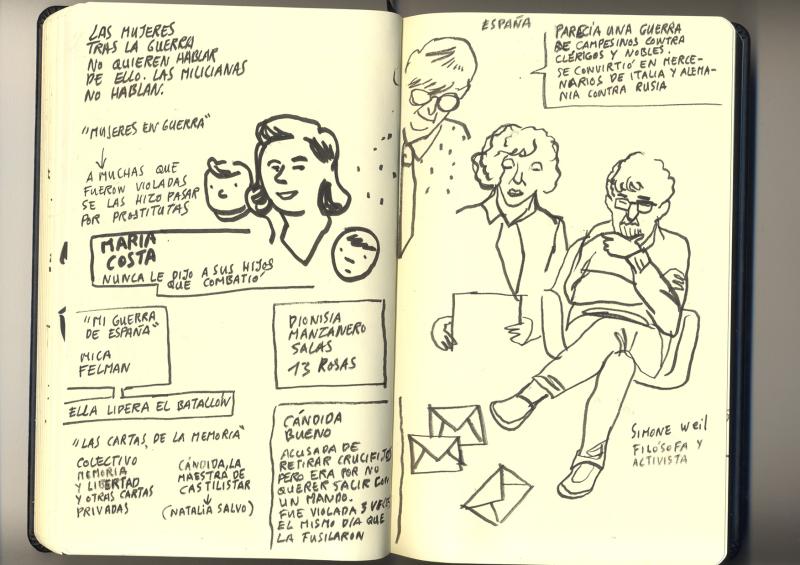 LAS MUJERES
TRAS LA GUERRA
NO QUIEREN HABLAR
DE ELLO. LAS MILICIANAS
NO HABLAN.
"MUJERES EN GUERRA"
A MUCHAS QUE
FUERON VIOLADAS
SE LAS HIZO PASAR
POR PROSTITUTAS
MARIA
COSTA
NUNCA LE DIJO A SUS HIJOS
QUE COMBATIÓ
"MI GUERRA
DE ESPAÑA"
MICA
FELMAN
DIONISIA
MANZANERO
SALAS
13 ROSAS
ELLA LIDERA EL BATALLÓN
"LAS CARTAS DE LA MEMORIA"
COLECTIVO
MEMORIA
Y LIBERTAD
Y OTRAS CARTAS
PRIVADAS
CÁNDIDA, LA
MAESTRA DE
CASTILISTAR
(NATALIA SALVO)
CÁNDIDA
BUENO
ACUSADA DE
RETIRAR CRUCIFIJOS
PERO ERA POR NO
QUERER SALIR CON
UN MANDO.
FUE VIOLADA 3 VECES
EL MISMO DÍA QUE
LA FUSILARON
ESPAÑA
PARECÍA UNA GUERRA
DE CAMPESINOS CONTRA
CLÉRIGOS Y NOBLES.
SE CONVIRTIÓ EN MERCE-
NARIOS DE ITALIA Y ALEMA-
NIA CONTRA RUSIA
SIMONE WEIL
FILÓSOFA Y
ACTIVISTA